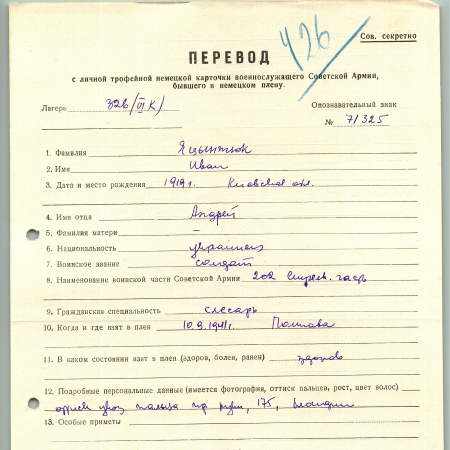 Сов. секретно
426
ПЕРЕВОД
с личной трофейной немецкой карточки военнослужащего Советской Армии,
бывшего в немецком плену.
Лагерь 326/VI К/
Опознавательный знак
№ 71325
1. Фамилия
2. Имя Иван
3. Дата и место рождения 1919 г. Киевская обл.
4. Имя отца Андрей
5. Фамилия матери –
6. Национальность украинец
7. Воинское звание солдат
8. Наименование воинской части Советской Армии 202 стрелк.
9. Гражданская специальность слесарь
10. Когда и где взят в плен 10.9.1941г. Полтава
11. В каком состоянии взят в плен (здоров, болен, ранен) здоров
12. Подробные персональные данные (имеется фотография, оттиск пальцев, рост, цвет волос)
оттиск указ. пальца пр. руки, 175, блондин
13. Особые приметы